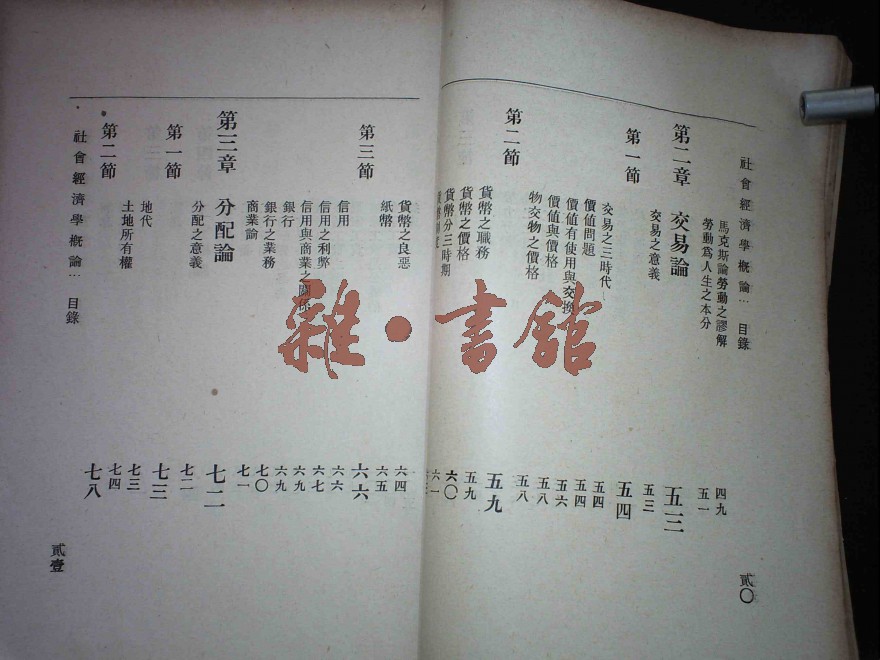 社會經濟學概論… 目錄 貳〇
馬克斯論勞動之謬解 四九
勞動為人生之本分 五一
第二章 交易論 五三
交易之意義 五三
第一節 五四
交易之三時代 五四
價值問題 五四
價值有使用與交換 五六
價值與價格 五八
物交物之價格 五八
第二節 五九
貨幣之職務 五九
貨幣之價格 六〇
貨幣分三時期 六一
貨幣之良惡 六四
紙幣 六五
第三節 六六
信用 六六
信用之利弊 六七
信用與商業之關係 六九
銀行 六九
銀行之業務 七〇
商業論 七一
第三章 分配論 七二
分配之意義 七二
第一節 七三
地代 七三
土地所有權 七四
第二節 七八
社會經濟學概論… 目錄 貳壹
雜·書館